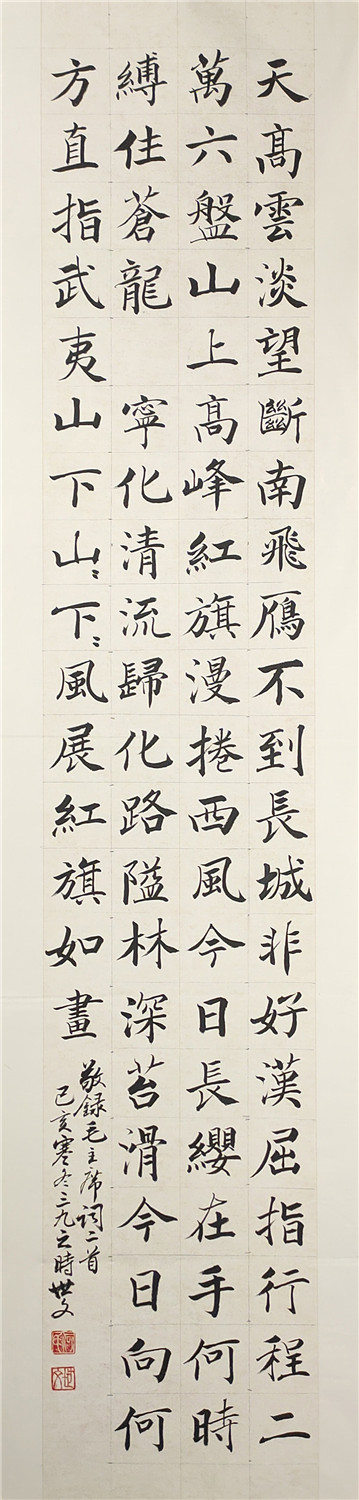 天高雲淡望斷南飛鴈不到長城非好漢屈指行程二
萬六盤山上高峰紅旗漫捲西風今日長纓在手何時
縛住蒼龍 寧化清流歸化路隘林深苔滑今日向何
方直指武夷山下山〻下〻風展紅旗如畫
敬録毛主席詞二首
己亥寒冬三九之時世文